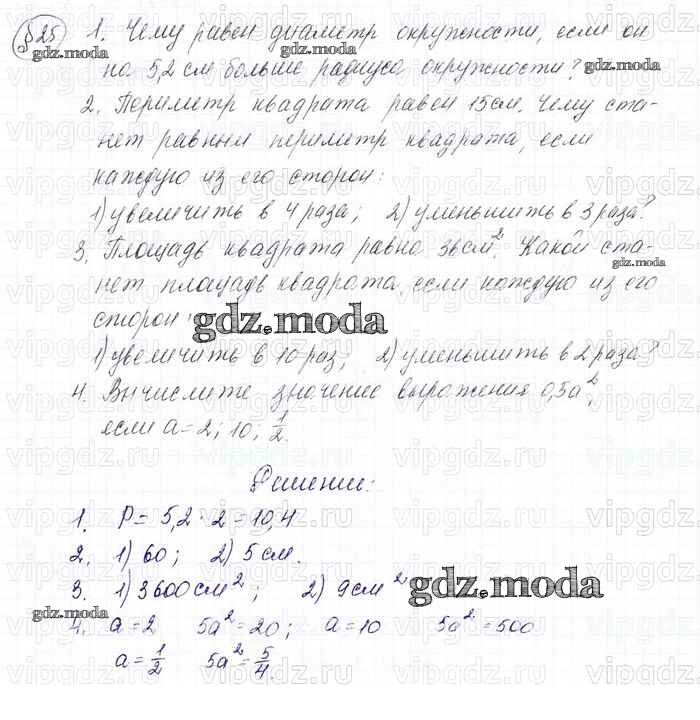 §25 1. Чему равен диаметр окружности, если он
на 5,2 см больше радиуса окружности?
2. Периметр квадрата равен 15 см. Чему ста-
нет равным периметр квадрата, если
каждую из его сторон:
1) увеличить в 4 раза; 2) уменьшить в 3 раза?
3. Площадь квадрата равна 36 см². Какой ста-
нет площадь квадрата, если каждую из его
сторон:
1) увеличить в 10 раз; 2) уменьшить в 2 раза?
4. Вычислите значение выражения 0,5a²,
если a=2; 10; 1/2.
Решение:
1. P = 5,2 · 2 = 10,4
2. 1) 60; 2) 5 см.
3. 1) 3600 см²; 2) 9 см²
4. a=2 5a²=20; a=10 5a²=500
a=1/2 5a²=5/4.
gdz.moda
vipgdz.ru